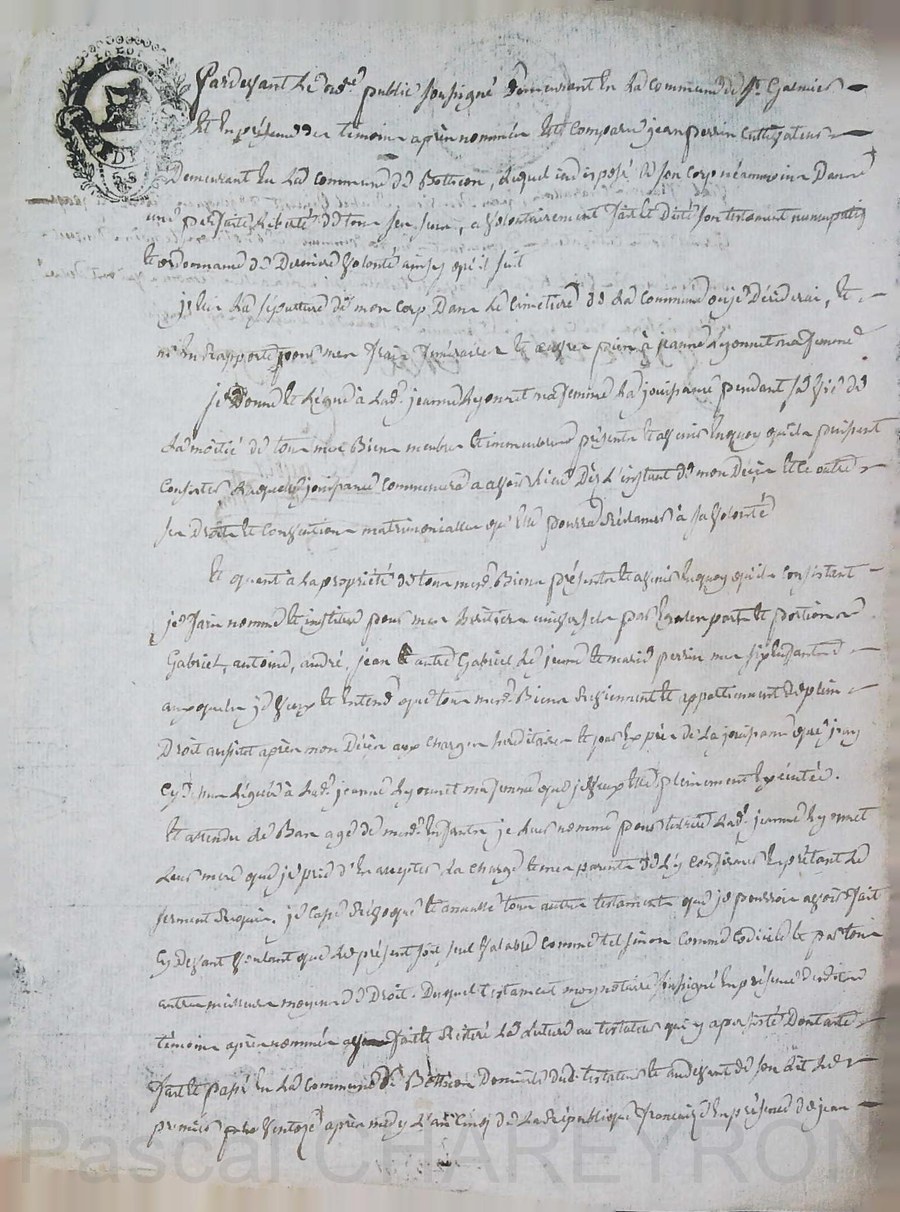 LA LOI
5 S
Pardevant le no.re public soussigné demeurant en la commune de St Galmier
et en présence des temoins après nommés est comparu jean perrin cultivateur
Demeurant en la commune de Bothéon, lequel indisposé de son corp néammoins dans
une parfaite liberté de tous ses sens, a volontairement fait et dicté son testament nuncupatif
et ordonnance de derniere volonté ainsy qu'il suit
j'elis la sépulture de mon corp dans le cimetiere de la commune ou je décèderai, et
m'en rapporte pour mes frais funéraires et œuvres pies à jeanne Lyonnet ma femme
je donne et légue à lad. jeanne Lyonnet ma femme la jouissance pendant sa vie de
la moitié de tous mes Biens meubles et immeubles présents et avenir en quoy qu'ils puissent
consister laquelle jouissance commencera a avoir lieu dès l'instant de mon décès et ce outre
ses droits et conventions matrimonialles qu'elle pourra réclamer à sa volonté
Et quant à la propriété de tous mesd. Biens présents et avenir en quoy qu'ils consistent
je fais nomme et institue pour mes héritiers universels par egales parts et portions
Gabriel, antoine, andré, jean et autre Gabriel le jeune et marie perrin mes six enfants
auxquels je veux et entend que tous mesd. Biens reviennent et appartiennent de plein
Droit aussitot après mon décès aux charges héréditaires et par exprès de la jouissance que j'ay
cy dessus léguée à lad. jeanne Lyonnet ma femme que je veux etre pleinement exécutée.
Et attendu le Bas age de mesd. Enfants je leur nomme pour tutrice lad. jeanne Lyonnet
leur mere que je prie d'en accepter la charge et mes parents de l'y confirmer en prêtant le
serment requis. je casse révoque et annulle tous autres testaments que je pourrois avoir fait
cy devant voulant que le présent soit seul valable comme tel sinon comme codicile et par tous
autres meilleurs moyens de Droit. Duquel testament moy notaire soussigné en présence desdits
témoins après nommés ay fait et réitéré la lecture au testateur qui y a persisté Dont acte
fait et passé en la commune de Bothéon domicile dudit testateur et au devant de son lit le
premier ventose après medy L'an cinq de la république française en présence de jean
Pascal CHAREYRON